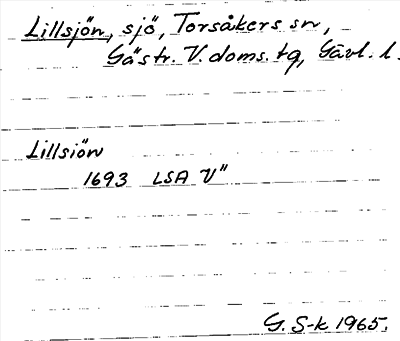 Lillsjön, sjö, Torsåkers sn,
Gästr. V. doms. tg, Gävl. l.
Lillsiön
1693 LSA V"
G. S-k 1965.